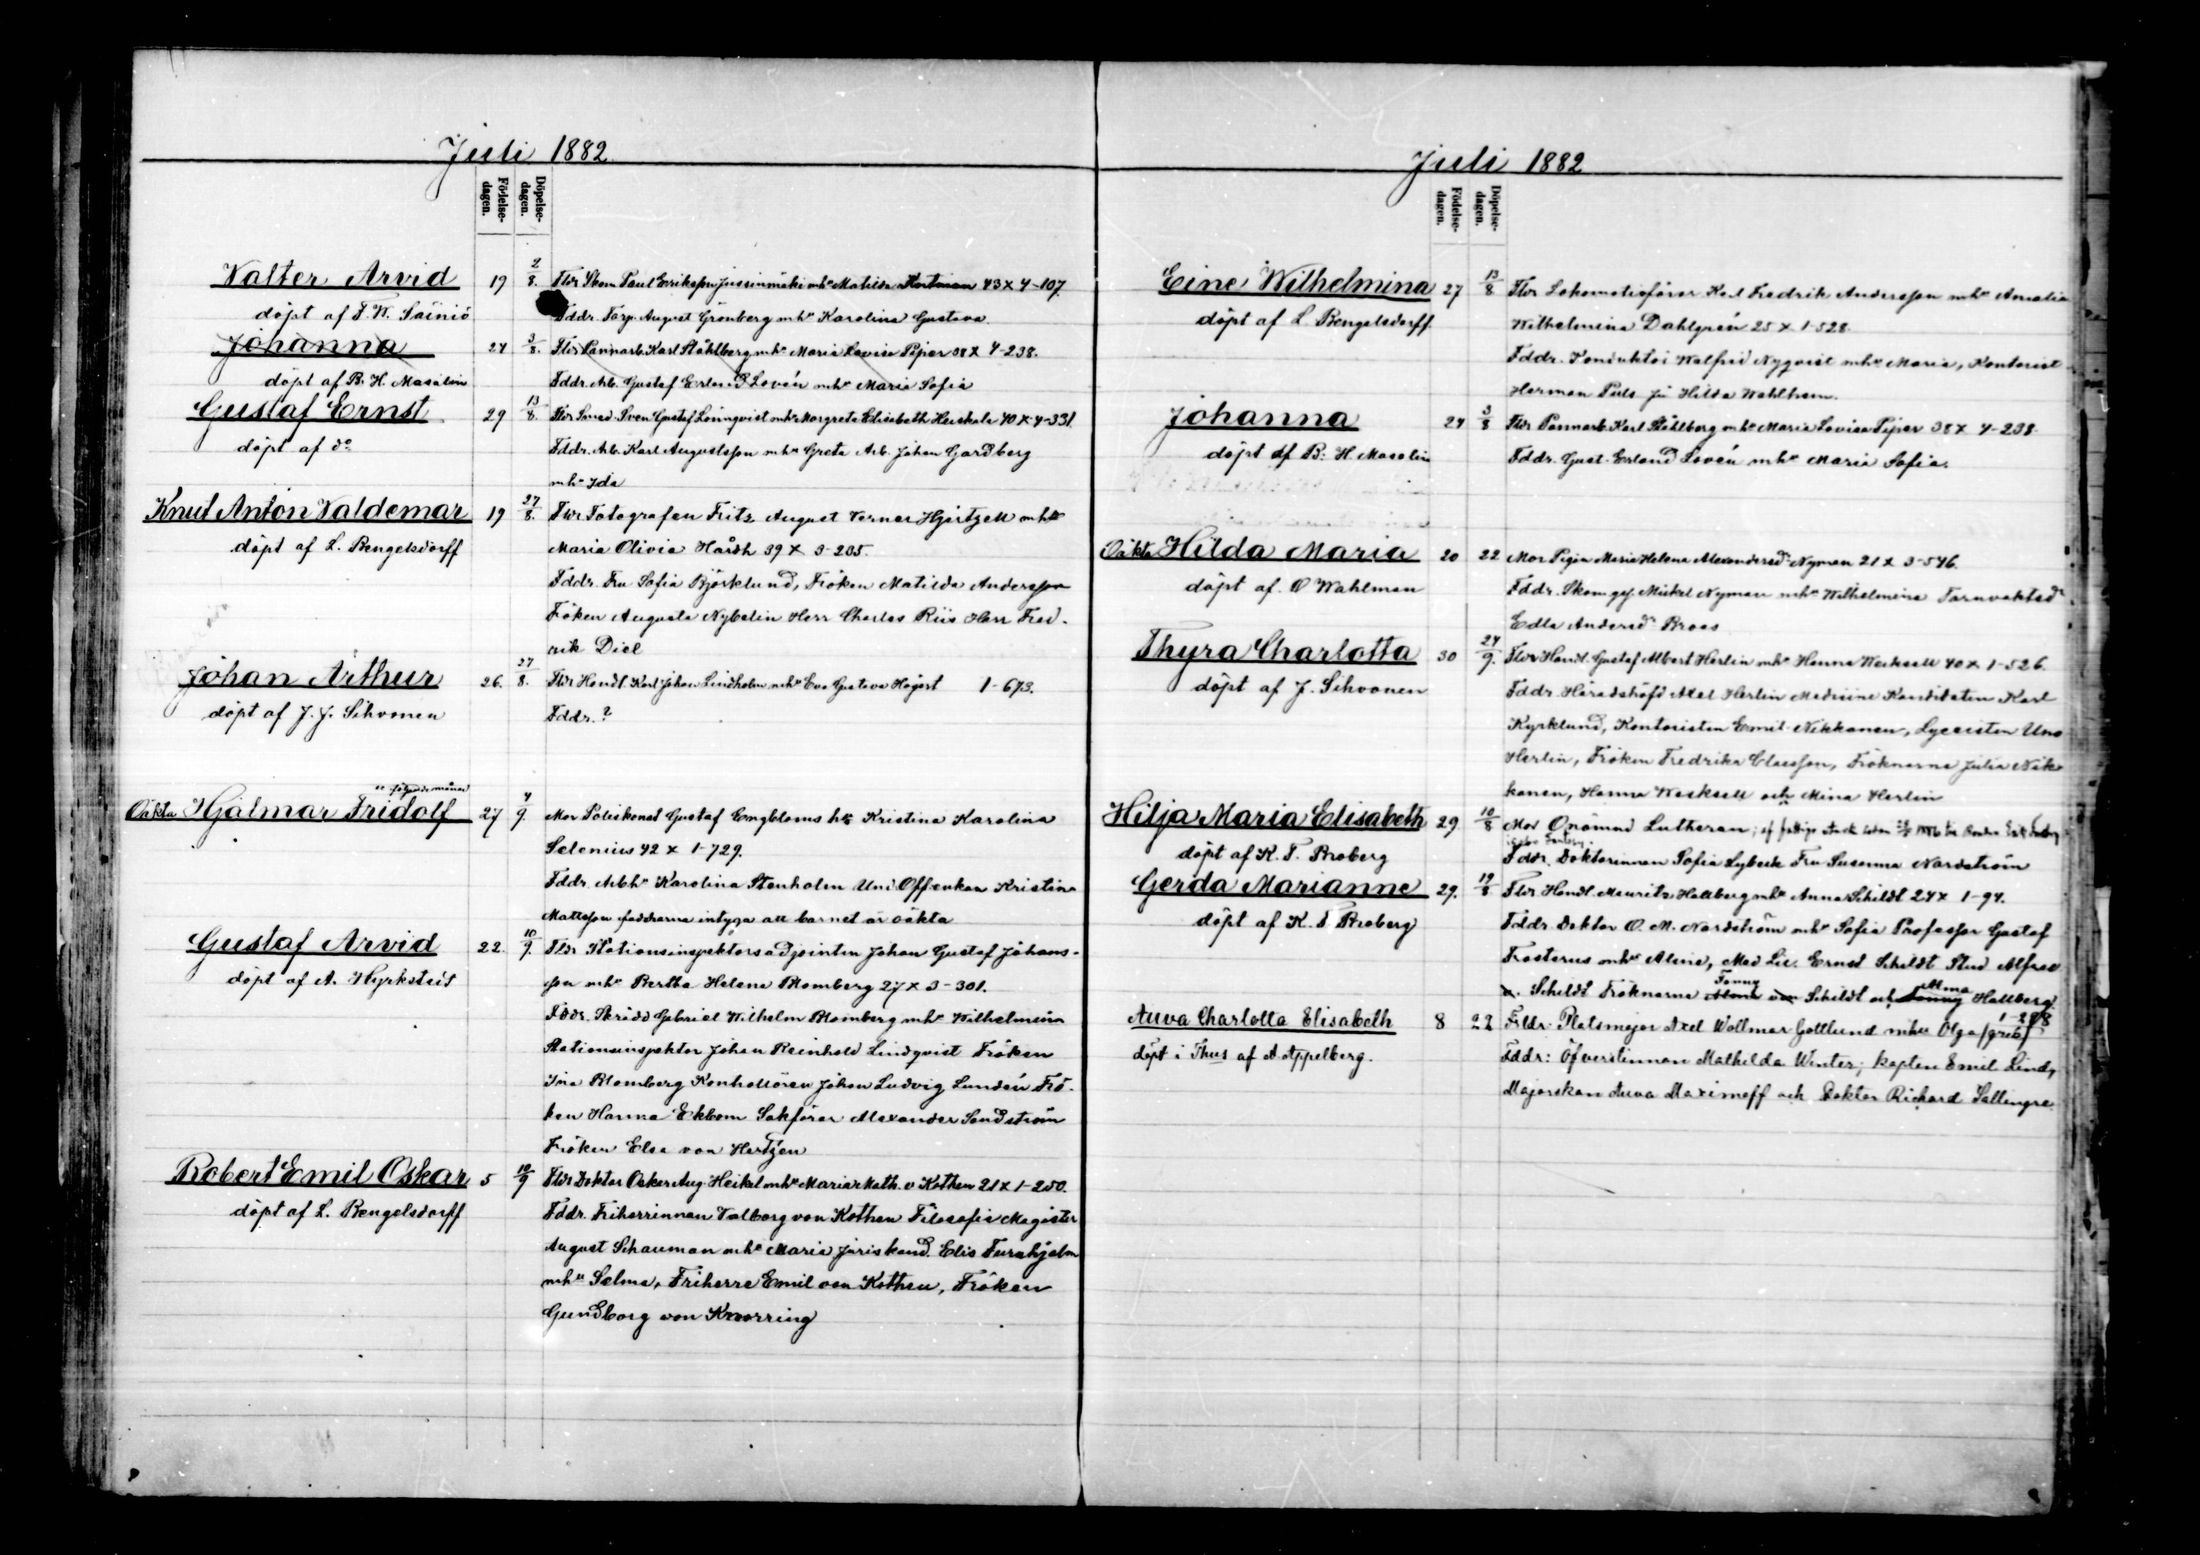 Juli 1882
Födelse-dagen.
Döpelse-dagen.
Valter Arvid 19 2/8. Fldr Skom Paul Eriksson Jussinmäki mhu Matilda Kortman 43 x 4-107.
döpt af F. W. Säiniö Fddr. Torp. August Grönberg mhu Karolina Gustava.
Johanna 24 3/8. Fldr Pannarb. Karl Ståhlberg mhu Maria Lovisa Piper 38 x 4-238.
döpt af B. H. Masalin Fddr. Arb. Gustaf Erland Lovén mhu Maria Sofia
Gustaf Ernst 29 13/8. Fldr Smed. Sven Gustaf Lönnqvist mhu Margreta Elisabeth Heiskala 40 x 4-331.
döpt af do Fddr. Arb. Karl Augustsson mhu Greta Arb. Johan Gardberg
mhu Ida
Knut Anton Valdemar 19 27/8. Fldr Fotografen Fritz August Verner Hjertzell mhu
döpt af L. Bengelsdorff Maria Olivia Hårdh 39 x 3-235.
Fddr. Fru Sofia Björklund, Fröken Matilda Andersson
Fröken Augusta Nybelin Herr Charles Riis Herr Fred-
rik Diel
Johan Arthur 26. 27/8. Fldr Handl. Karl Johan Lindholm mhu Eva Gustava Högert 1-673.
döpt af J. J. Sihvonen Fddr. ?
följande månad
Oäkta Hjalmar Fridolf 27 4/9. Mor Poliskonst Gustaf Engbloms h. Kristina Karolina
Selenius 42 x 1-729.
Fddr. Arbhu Karolina Stenholm Und. Off. enkan Kristina
Mattsson faddrarna intyga att barnet är oäkta
Gustaf Arvid 22. 10/9. Fldr Stationsinspektorsadjointen Johan Gustaf Johans-
döpt af A. Hyrkstedt son mhu Bertha Helena Blomberg 27 x 3-301.
Fddr. Skrädd Gabriel Wilhelm Blomberg mhu Wilhelmina
Stationsinspektor Johan Reinhold Lindqvist Fröken
Ina Blomberg Kontrollören Johan Ludvig Lundén Frö-
ken Hanna Ekbom Sakförar Alexander Sandström
Fröken Elsa von Hertzen
Robert Emil Oskar 5 10/9 Fldr Doktor Oskar Aug. Heikel mhu Maria Math. v Kothen 21 x 1-250.
döpt af L. Bengelsdorff Fddr. Friherrinnan Valborg von Kothen Filosofie Magister
August Schauman mhu Maria Juris kand. Elis Furuhjelm
mhu Selma, Friherre Emil von Kothen, Fröken
Gundborg von Knorring
Juli 1882
Födelse-dagen.
Döpelse-dagen.
Eine Wilhelmina 27 13/8 Fldr Lokomotivförar Karl Fredrik Andersson mhu Amalia
döpt af L Bengelsdorff Wilhelmina Dahlgrén 25 x 1-528.
Fddr. Konduktör Walfrid Nyqvist mhu Maria, Kontorist
Herman Puls Jn Hilda Wahlhem.
Johanna 24 3/8 Fldr Pannarb Karl Ståhlberg mhu Maria Lovisa Piper 38 x 4-238
döpt af B: H. Masalin Fddr. Gust. Erland Lovén mhu Maria Sofia.
Oäkta Hilda Maria 20 22 Mor Pigan Maria Helena Alexandersdr Nyman 21 x 3-546.
döpt af. O Wahlman Fddr. Skom.ges. Mickel Nyman mhu Wilhelmina Tornvaktsdr
Edla Andersdr Broas
Thyra Charlotta 30 24/9. Fldr Handl. Gustaf Albert Herlin mhu Hanna Wecksell 40 x 1-526.
döpt af J. Sihvonen Fddr. Häradshöfd Axel Herlin Medicine Kandidaten Karl
Kyrklund, Kontoristen Emil Nikkanen, Lyceisten Uno
Herlin, Fröken Fredrika Claesson, Fröknarna Julia Nik
kanen, Hanna Wecksell och Mina Herlin
Hilja Maria Elisabeth 29 10/8 Mor Onämnd Lutheran;
döpt af K. F. Broberg Fddr. Doktorinnan Sofia Lybeck Fru Susanna Nordström
Gerda Marianne 29. 19/8 Fldr Handl. Mauritz Hallberg mhu Anna Schildt 24 x 1-94.
döpt af K. F Broberg Fddr. Doktor O. M. Nordström mhu Sofia Professor Gustaf
Frosterus mhu Alma, Med Lic. Ernst Schildt Stud Alfred
Schildt Fröknarna Fanny Schildt och Alma Hallberg
1-298
Auva Charlotta Elisabeth 8 22 Frldr: Platsmajor Axel Wollmar Gottlund mhu Olga
döpt i Thus af A Appelberg. Fddr: Öfverstinnan Mathilda Winter; kapten Emil Lind,
Majorskan Auva Maximoff och Doktor Richard Sallingre.